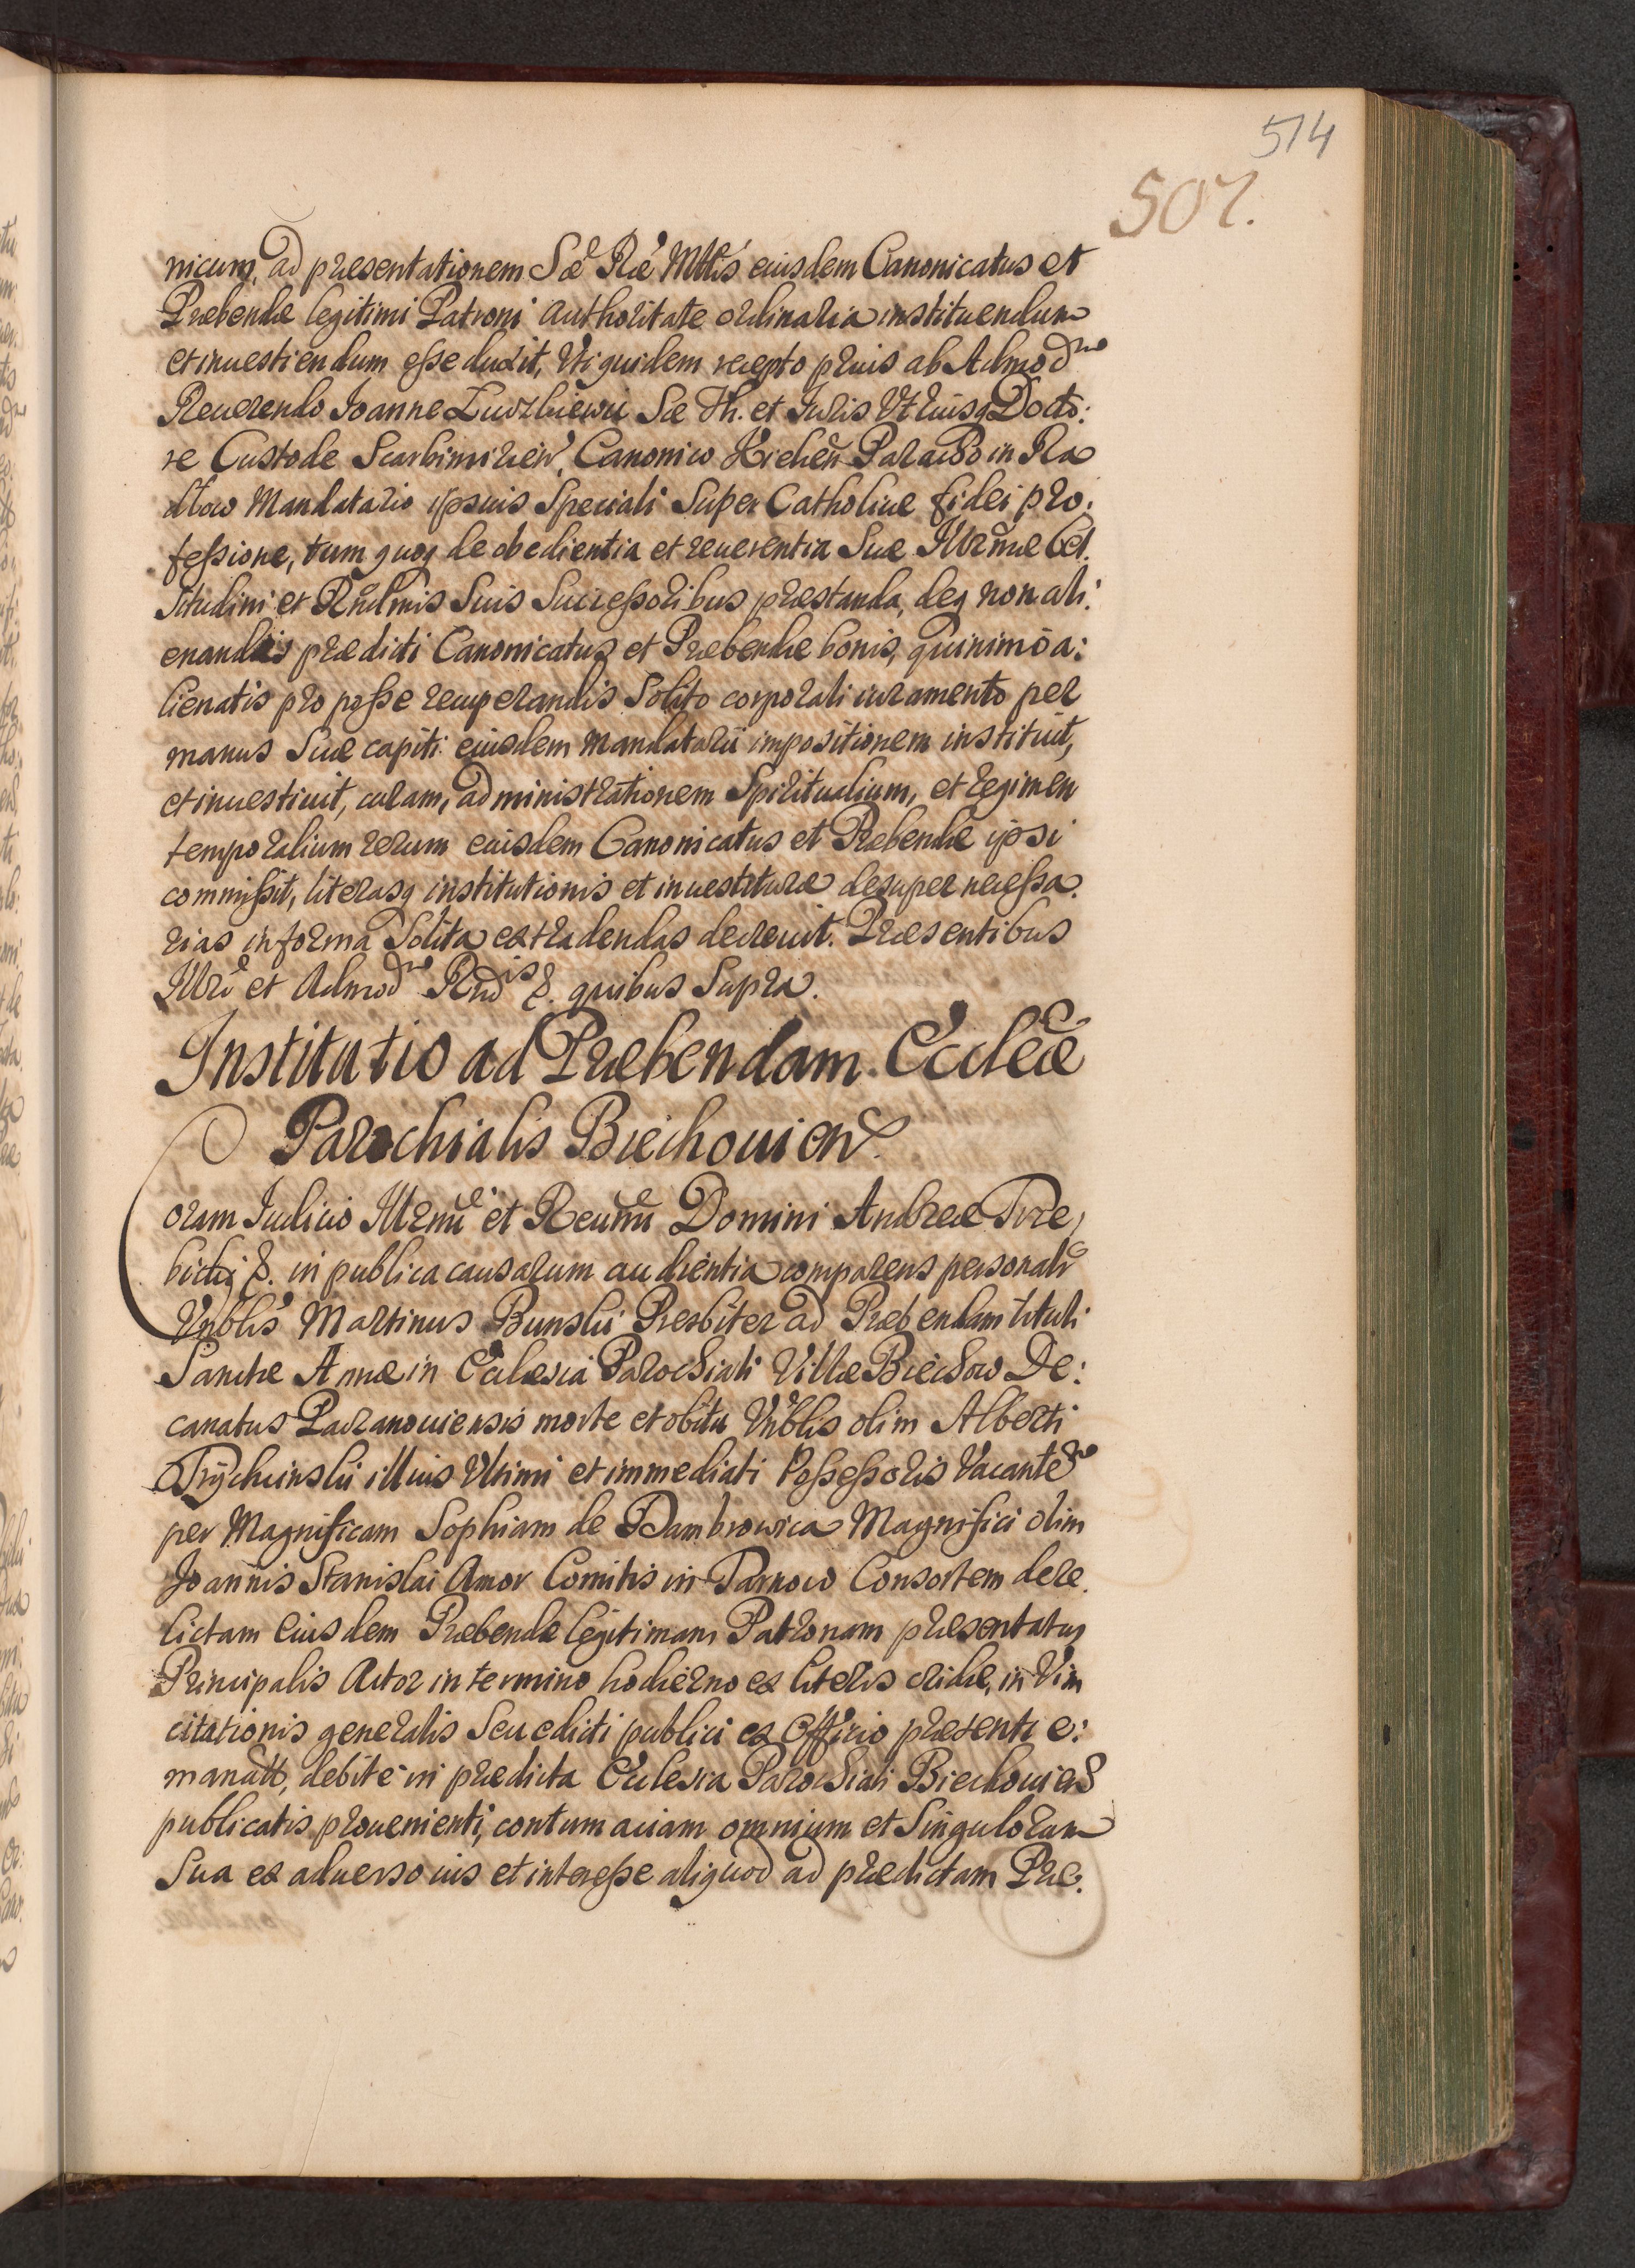 514
507.
nicum, ad præsentationem Sæ Ræ Mttis eiusdem Canonicatus et
Præbendæ legitimi Patroni authoritate ordinaria instituendum
et inuestiendum esse duxit, Vti quidem recepto prius ab Admod
Reuerendo Joanne Sæ Th. et Juris Vtriusq Docto:
re Custode Scarbimirien, Canonico Kielceñ Paracho in Ra
dłow Mandatario ipsius Speciali Super Catholicæ fidei pro:
fessione, tum quoq de obedientia et reuerentia Suæ Illrmæ Cel
Situdini et Rndmis Suis Successoribus præstanda, deq non ali:
enandis prædicti Canonicatus et Præbendæ bonis, quinimò a:
lienatis pro posse recuperandis Solito corporali iuramento per
manus Suæ capiti eiusdem Mandatarii impositionem instituit,
et inuestiuit, curam, administrationem Spiritualium, et regimen
temporalium rerum eiusdem Canonicatus et Præbendæ ipsi
commissit, literasq institutionis et inuestituræ desuper necessa.
rias in forma Solita extradendas decreuit. Præsentibus
Illri et Admod Rnd &. quibus Supra.
Institutio ad Præbendam Ecclæ
Parochialis Biechouien
Coram Judicio Illrmi et Reuñi Domini Andreæ Trze,
bicki &. in publica causarum audientia comparens personalr
Vnblis Martinus Bunski Presbiter ad Præbendam tituli
Sanctæ Annæ in Ecclesia Parochiali Villæ Biechow De:
canatus Pacanouiensis morte et obitu Vnblis olim Alberti
Trÿchinskii illius Vltimi et immediati Possessoris Vacantē
per Magnificam Sophiam de Dambrowica Magnifici olim
Joannis Stanislai Amor Comitis in Tarnow Consortem dere
lictam eiusdem Præbendæ legitimam Patronam præsentatus
Principalis Actor in termino hodierno ex literis cridæ, in Vim
citationis generalis Seu edicti publici ex Officio præsenti e:
manatt, debite in prædicta Ecclesia Parochiali Biechouieñ
publicatis prouenienti, contumaciam omnium et Singulorum
Sua ex aduerso ius et interesse aliquod ad prædictam Præ.